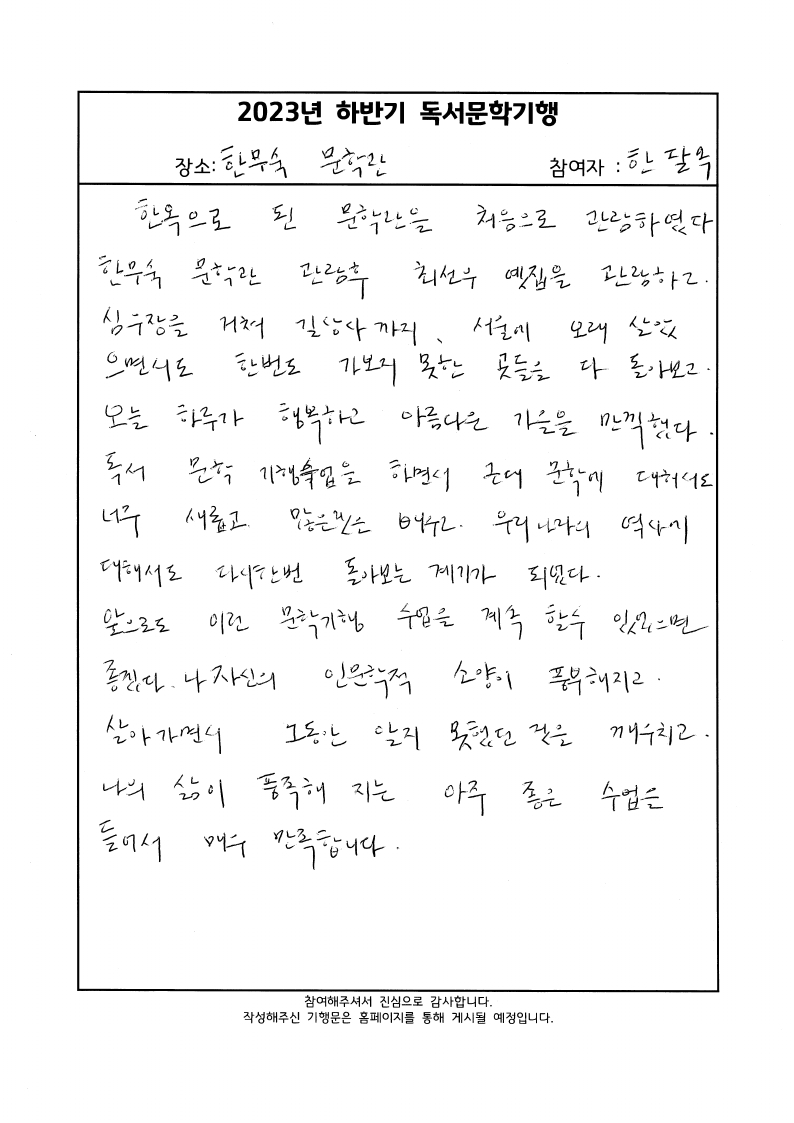 2023년 하반기 독서문학기행
장소: 한무숙 문학관 참여자 : 한달옥
한옥으로 된 문학관을 처음으로 관람하였다
한무숙 문학관 관람후 최선우 옛집을 관람하고.
심우장을 거쳐 길상사까지, 서울에 오래 살았
으면서도 한번도 가보지 못한 곳들을 다 돌아보고.
오늘 하루가 행복하고 아름다운 가을을 만끽했다.
독서 문학 기행수업을 하면서 근대 문학에 대해서도
너무 새롭고 많은것은 배우고. 우리나라의 역사에
대해서도 다시한번 돌아보는 계기가 되었다.
앞으로도 이런 문학기행 수업을 계속 할수 있었으면
좋겠다. 나 자신의 인문학적 소양이 풍부해지고.
살아가면서 그동안 알지 못했던 것을 깨우치고.
나의 삶이 풍족해 지는 아주 좋은 수업을
들어서 매우 만족합니다.
참여해주셔서 진심으로 감사합니다.
작성해주신 기행문은 홈페이지를 통해 게시될 예정입니다.